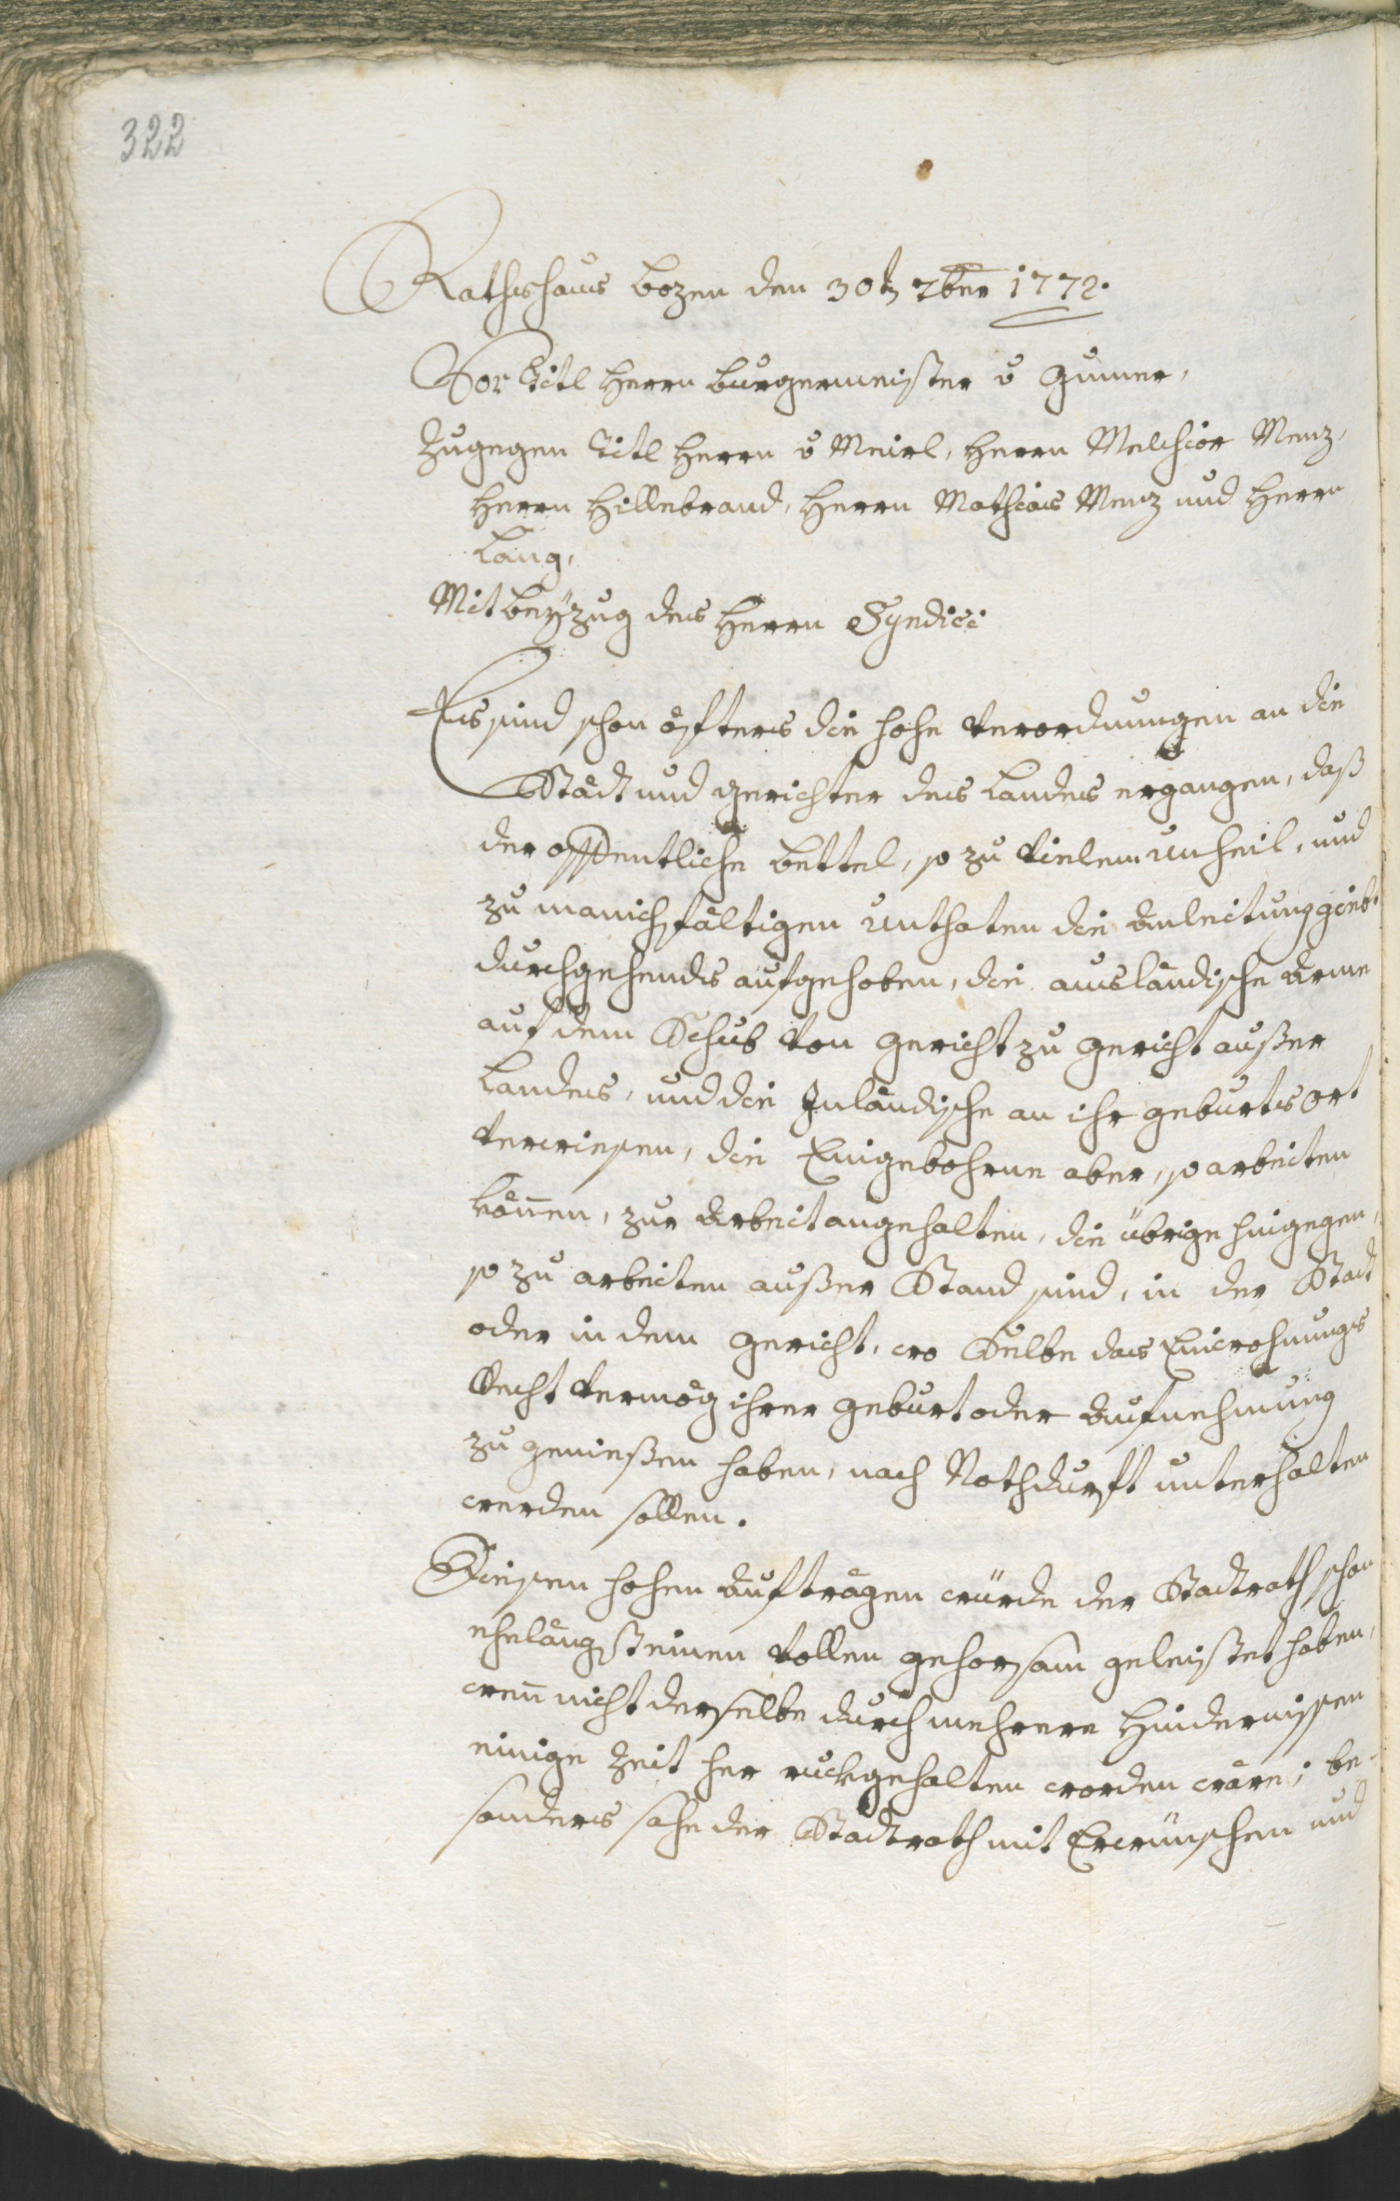 322
Rathshaus bozen den 30t 7ber 1772.
Vor Titl Herrn burgermeister v Gumer,
Zugegen Titl Herrn v Meirl, Herrn Melchior Menz,
Herrn Hillebrand, Herrn Mathias Menz und Herrn
Lang,
Mit beyzug des Herrn Syndici
Es sind schon öfters die hohe Verordnungen an die
Städt und gerichter des Landes ergangen, daß
der offentliche bettel, so zu Vielem unheil, und
zu manichfältigen unthaten die Anleitung giebt
durchgehends aufgehoben, die ausländische Arme
auf dem Schub Von gericht zu gericht außer
Landes, und die Inländische an ihr geburts Ort
Verwiesen, die Eingebohrne aber, so arbeiten
können, zur Arbeit angehalten, die übrige hingegen,
so zu arbeiten außer Stand sind, in der Stadt
oder in dem gericht, wo Selbe das Einwohnungs
Recht Vermög ihrer geburt oder Aufnehmung
zu genießen haben, nach Nothdurft unterhalten
werden sollen.
Diesen hohen Aufträgen würde der Stadtrath schon
ehelängst einen Vollen gehorsam geleistet haben,
wenn nicht derselbe durch mehrere Hindernissen
einige Zeit her ruckgehalten worden wäre; be-
sonders sahe der Stadtrath mit Erwünschen und